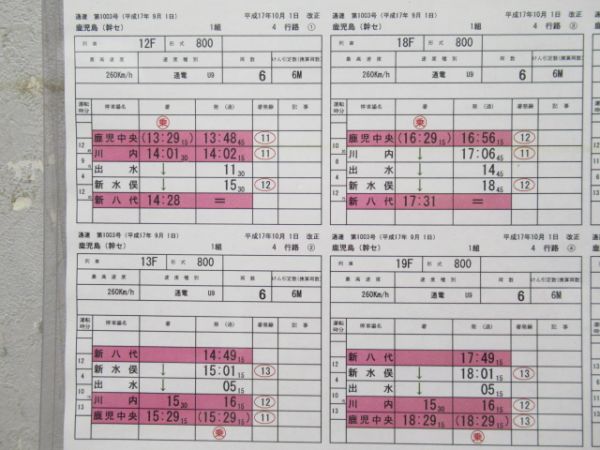 達達 第1003号 (平成17年 9月 1日) 平成17年10月 1日 改正
鹿児島 (幹セ) 1組 4 行路 ①
列車 12F 形式 800
最高速度 速度種別 両数 けん引定数(換算両数)
260Km/h 通電 U9 6 6M
運転時分 停車場名 着 発 (通) 着発線 記事
乗
鹿児中央 (13:29 15) 13:48 45 11
12
川内 14:01 30 14:02 15 11
9
出水 ↓ 11 30
4
新水俣 ↓ 15 30 12
12
新八代 14:28 =
達達 第1003号 (平成17年 9月 1日) 平成17年10月 1日 改正
鹿児島 (幹セ) 1組 4 行路 ③
列車 18F 形式 800
最高速度 速度種別 両数 けん引定数(換算両数)
260Km/h 通電 U9 6 6M
運転時分 停車場名 着 発 (通) 着発線 記事
乗
鹿児中央 (16:29 15) 16:56 15 12
10
川内 ↓ 17:06 45 11
8
出水 ↓ 14 45
4
新水俣 ↓ 18 45 12
12
新八代 17:31 =
達達 第1003号 (平成17年 9月 1日) 平成17年10月 1日 改正
鹿児島 (幹セ) 1組 4 行路 ②
列車 13F 形式 800
最高速度 速度種別 両数 けん引定数(換算両数)
260Km/h 通電 U9 6 6M
運転時分 停車場名 着 発 (通) 着発線 記事
新八代 14:49 15
12
新水俣 ↓ 15:01 15 13
4
出水 ↓ 05 15
10
川内 15 30 16 15 12
13
鹿児中央 15:29 15 (15:29 15) 11
乗
達達 第1003号 (平成17年 9月 1日) 平成17年10月 1日 改正
鹿児島 (幹セ) 1組 4 行路 ④
列車 19F 形式 800
最高速度 速度種別 両数 けん引定数(換算両数)
260Km/h 通電 U9 6 6M
運転時分 停車場名 着 発 (通) 着発線 記事
新八代 17:49 15
12
新水俣 ↓ 18:01 15 13
4
出水 ↓ 05 15
10
川内 15 30 16 15 12
13
鹿児中央 18:29 15 (18:29 15) 13
乗